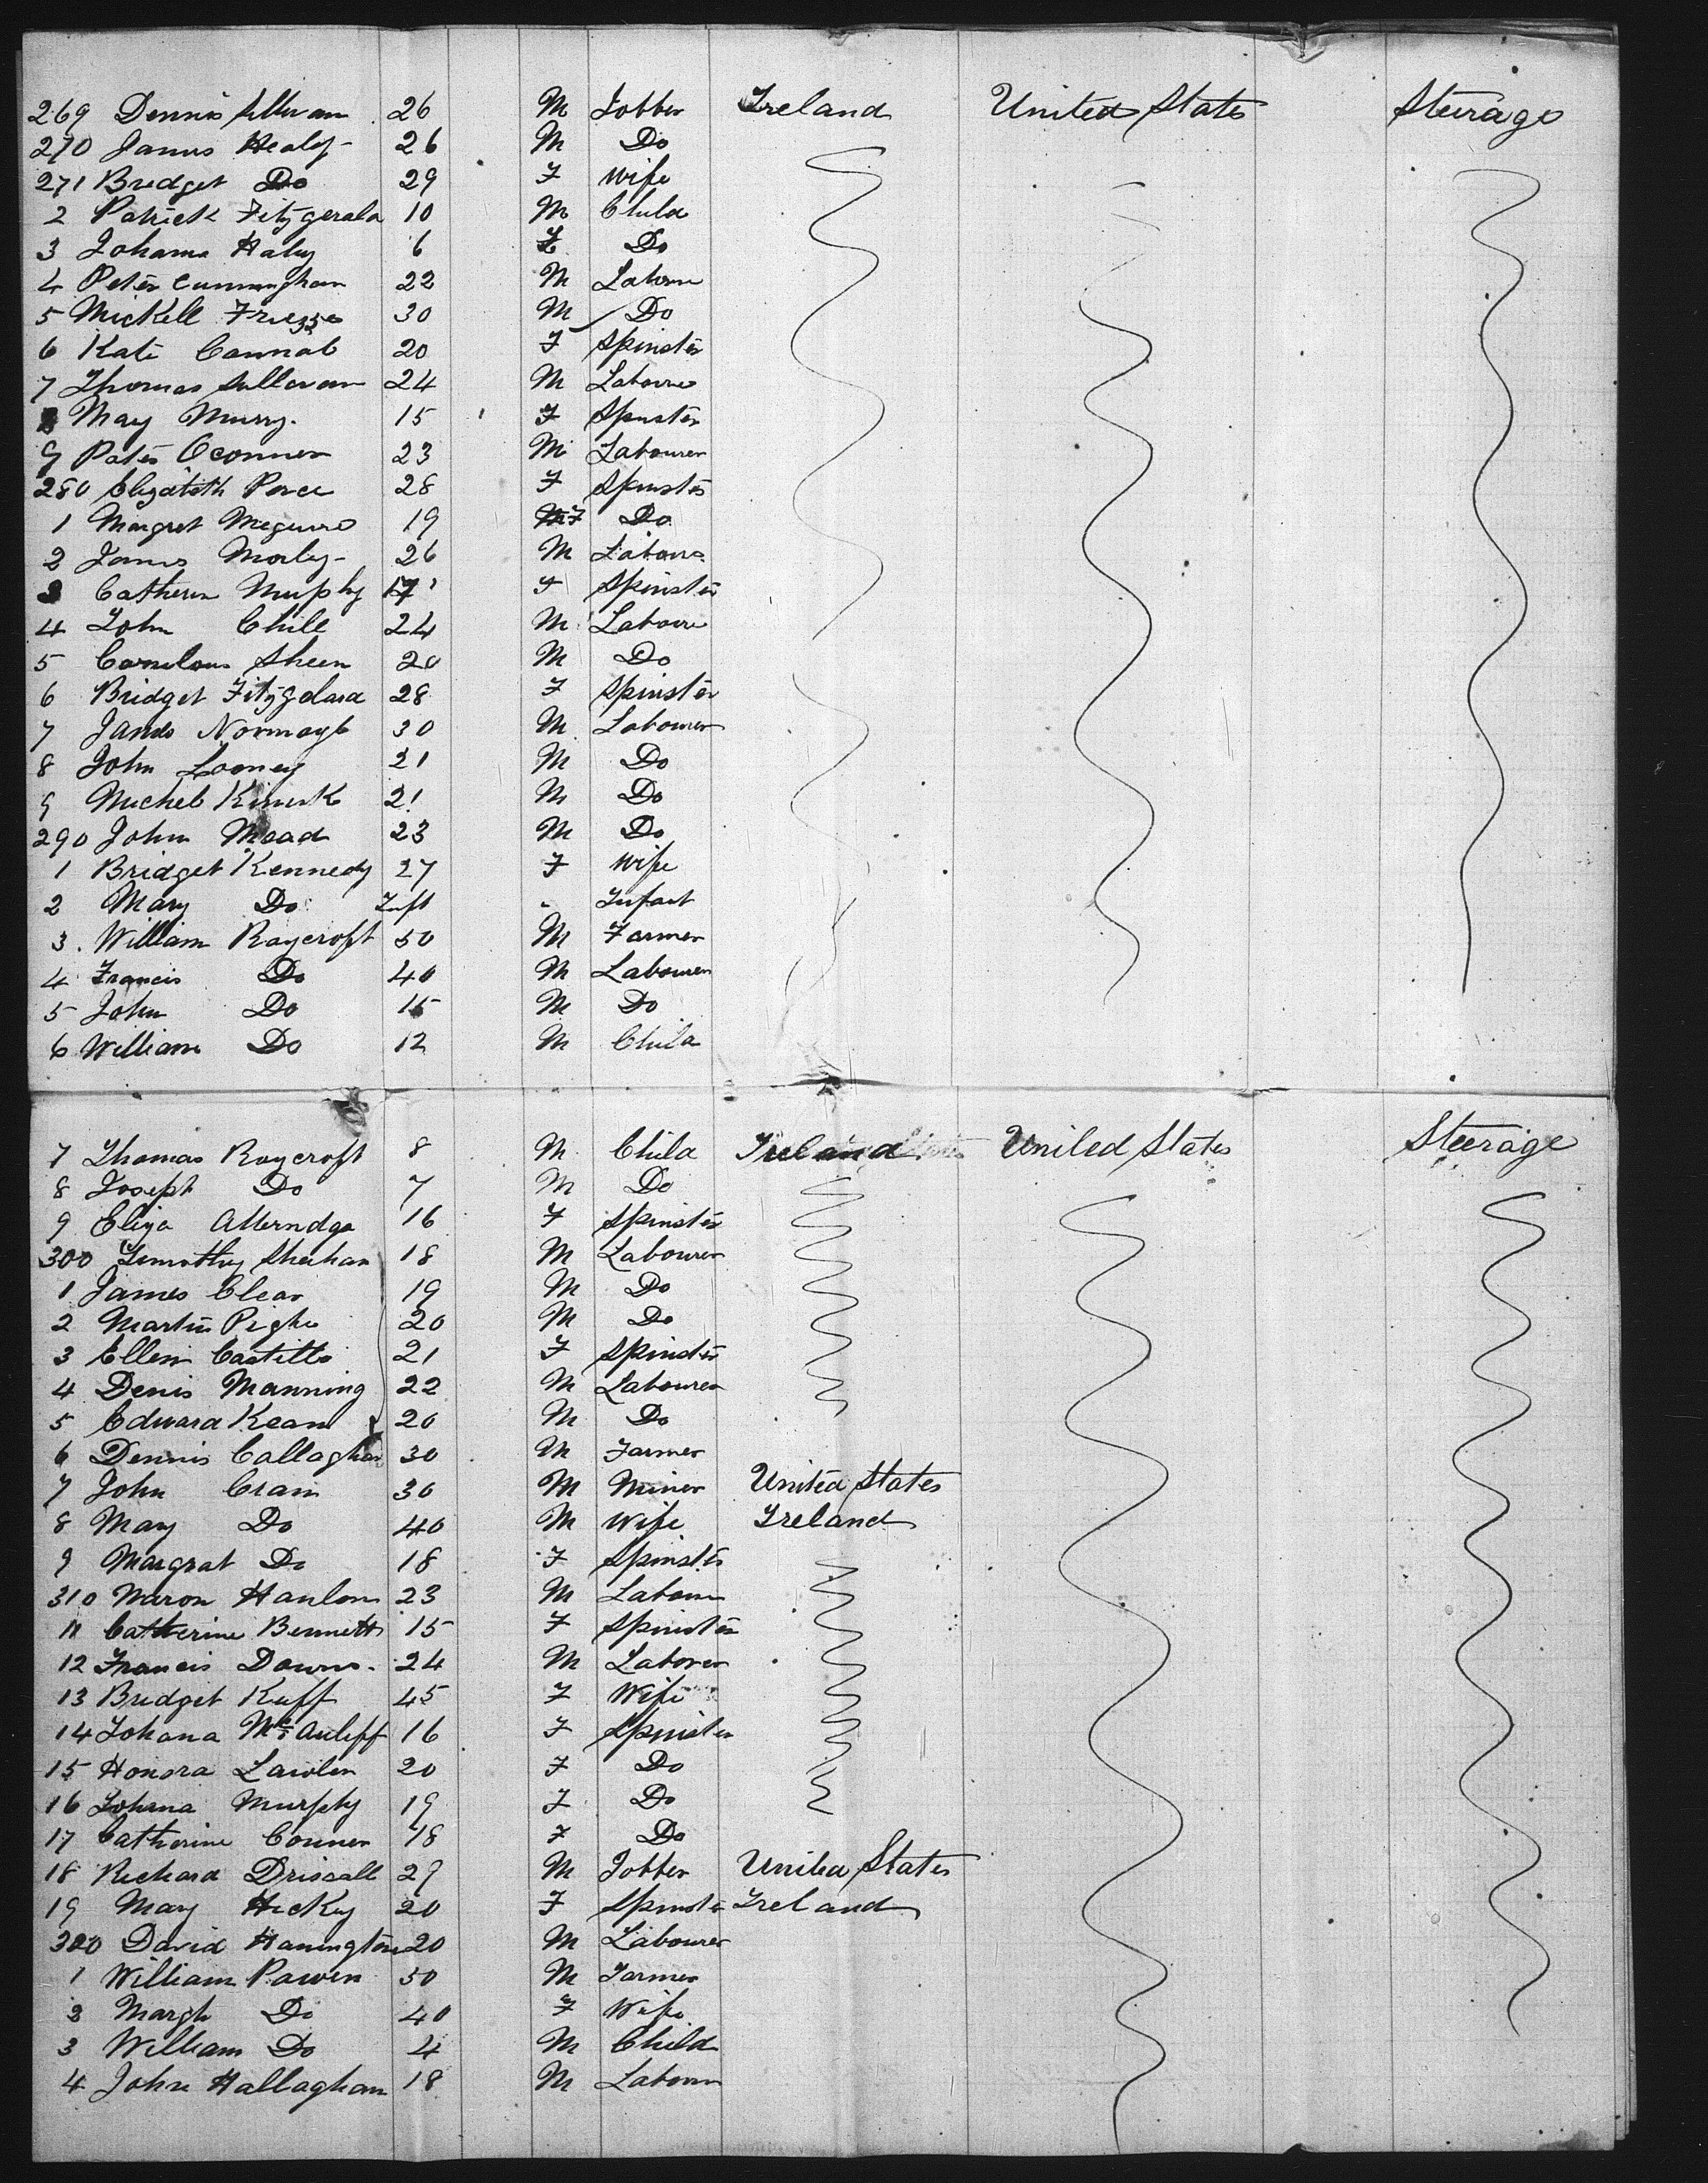 269 Dennis Sullivan 26 M Jobber Ireland United States Steerage
270 James Healy 26 M Do
271 Bridget Do 29 F Wife
2 Patrick Fitzgerald 10 M Child
3 Johanna Haly 6 F Do
4 Peter Cunningham 22 M Laboure
5 Mickell 30 M Do
6 Kate 20 F Spinster
7 Thomas Sullavan 24 M Labourer
8 May Murry. 15 F Spinster
9 Oconner 23 M Labourer
280 Elizabeth 28 F Spinster
1 Margret Meguire 19 F Do
2 James Morley 26 M Laboure
3 Cathern Murphy 17 F Spinster
4 John 24 M Laboure
5 Sheen 20 M Do
6 Bridget 28 F Spinster
7 30 M Labourer
8 John Looney 21 M Do
9 Michel 21 M Do
290 John Mead 23 M Do
1 Bridget Kennedy 27 F Wife
2 Mary Do Inft Infant
3. William Roycroft 50 M Farmer
4 Francis Do 40 M Labourer
5 John Do 15 M Do
6 William Do 12 M Child
7 Thomas Roycroft 8 M Child Ireland United States Steerage
8 Joseph Do 7 M Do
9 Eliza 16 F Spinster
300 Timothy Sheehan 18 M Labourer
1 James Clear 19 M Do
2 Martin 20 M Do
3 Ellen 21 F Spinster
4 Denis Manning 22 M Labourer
5 Edward Kean 20 M Do
6 Dennis Callaghan 30 M Farmer
7 John Crain 30 M Miner United States
8 May Do 40 M Wife Ireland
9 Margrat Do 18 F Spinster
310 Hanlon 23 M Laboure
11 Catherine Bennett 15 F Spinster
12 Francis Downs. 24 M Laborer
13 Bridget Kuff 45 F Wife
14 Johana McAuliff 16 F Spinster
15 Honora Lawler 20 F Do
16 Johana Murphy 19 F Do
17 Catherine Conner 18 F Do
18 Richard Driscall 29 M Jobber United States
19 Mary Hickey 20 F Spinster Ireland
320 David Hanington 20 M Labourer
1 William Pawen 50 M Farmer
2 Margh Do 40 F Wife
3 William Do 4 M Child
4 John Hallaghan 18 M Laboure